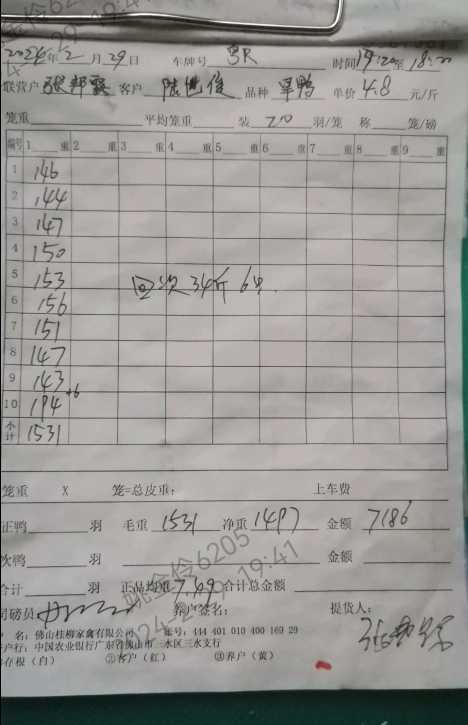 2024年2月29日 车牌号 粤R 时间 17:20至18:20
联营户 张邦 客户 陈 品种 旱鸭 单价 4.8 元/斤
笼重 平均笼重 装 20 羽/笼 称 笼/磅
编号 1 重 2 重 3 重 4 重 5 重 6 重 7 重 8 重 9 重
1 146
2 144
3 147
4 150
5 153 回次34斤6只
6 156
7 151
8 147
9 143
10 194 +6
小计 1531
笼重 X 笼=总皮重: 上车费
正鸭 羽 毛重 1531 净重 1497 金额 7186
次鸭 羽 金额
合计 羽 正品均重 7.49 合计总金额
司磅员 养户签名: 提货人:
户 名: 佛山桂柳家禽有限公司 账号: 444 401 010 400 169 29
开户行: 中国农业银行广东省佛山市三水区三水支行
①存根(白) ②客户(红) ③养户(黄)
6205
19:41